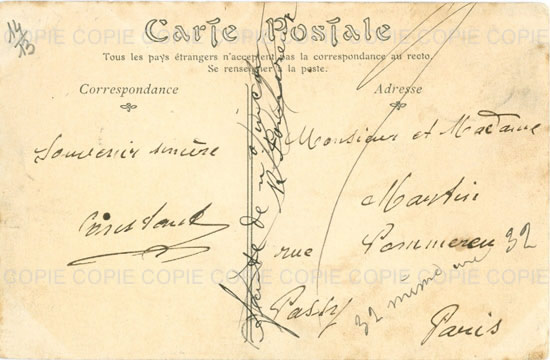 14
13
Carte Postale
Tous les pays étrangers n'acceptent pas la correspondance au recto.
Se renseigner à la poste.
Correspondance
Adresse
Souvenir sincère
Constant
Monsieur et Madame
Martin
rue Pommereu 32
Passy
32 même rue
Paris
COPIE COPIE COPIE COPIE COPIE COPIE COPIE
COPIE COPIE COPIE COPIE COPIE COPIE COPIE
COPIE COPIE COPIE COPIE COPIE COPIE COPIE